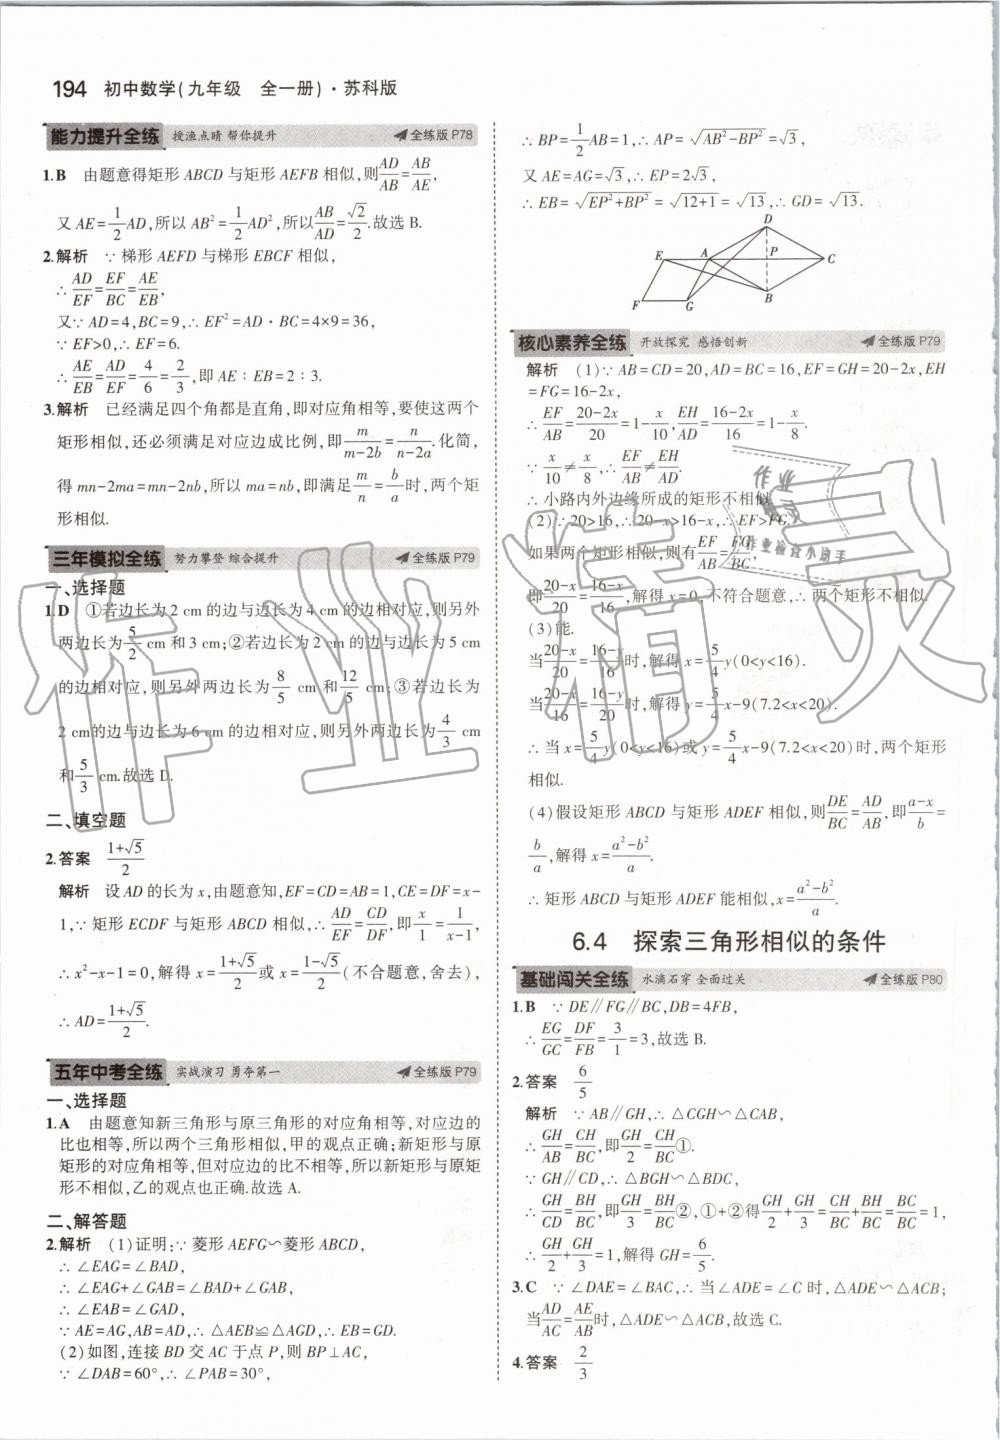 194 初中数学(九年级 全一册)·苏科版
能力提升全练 授渔点睛 帮你提升 全练版 P78
1.B 由题意得矩形 ABCD 与矩形 AEFB 相似,则AD/AB=AB/AE,
又 AE=1/2AD,所以 AB²=1/2AD²,所以AB/AD=√2/2.故选 B.
2.解析 ∵ 梯形 AEFD 与梯形 EBCF 相似,
∴ AD/EF=EF/BC=AE/EB,
又∵ AD=4,BC=9,∴ EF²=AD·BC=4×9=36,
∵ EF>0,∴ EF=6.
∴ AE/EB=AD/EF=4/6=2/3,即 AE∶EB=2∶3.
3.解析 已经满足四个角都是直角,即对应角相等,要使这两个
矩形相似,还必须满足对应边成比例,即m/(m-2b)=n/(n-2a).化简,
得 mn-2ma=mn-2nb,所以 ma=nb,即满足m/n=b/a时,两个矩
形相似.
三年模拟全练 努力攀登 综合提升 全练版 P79
一、选择题
1.D ①若边长为 2 cm 的边与边长为 4 cm 的边相对应,则另外
两边长为5/2 cm 和 3 cm;②若边长为 2 cm 的边与边长为 5 cm
的边相对应,则另外两边长为8/5 cm和12/5 cm;③若边长为
2 cm的边与边长为 6 cm 的边相对应,则另外两边长为4/3 cm
和5/3 cm.故选 D.
二、填空题
2.答案 (1+√5)/2
解析 设 AD 的长为 x,由题意知,EF=CD=AB=1,CE=DF=x-
1,∵ 矩形 ECDF 与矩形 ABCD 相似,∴ AD/EF=CD/DF,即x/1=1/(x-1),
∴ x²-x-1=0,解得 x=(1+√5)/2或 x=(1-√5)/2(不合题意,舍去),
∴ AD=(1+√5)/2.
五年中考全练 实战演习 勇夺第一 全练版 P79
一、选择题
1.A 由题意知新三角形与原三角形的对应角相等,对应边的
比也相等,所以两个三角形相似,甲的观点正确;新矩形与原
矩形的对应角相等,但对应边的比不相等,所以新矩形与原矩
形不相似,乙的观点也正确.故选 A.
二、解答题
2.解析 (1)证明:∵ 菱形 AEFG∽菱形 ABCD,
∴ ∠EAG=∠BAD,
∴ ∠EAG+∠GAB=∠BAD+∠GAB,
∴ ∠EAB=∠GAD,
∵ AE=AG,AB=AD,∴ △AEB≌△AGD,∴ EB=GD.
(2)如图,连接 BD 交 AC 于点 P,则 BP⊥AC,
∵ ∠DAB=60°,∴ ∠PAB=30°,
∴ BP=1/2AB=1,∴ AP=√(AB²-BP²)=√3,
又 AE=AG=√3,∴ EP=2√3,
∴ EB=√(EP²+BP²)=√(12+1)=√13,∴ GD=√13.
D
E A P C
B
F G
核心素养全练 开放探究 感悟创新 全练版 P79
解析 (1)∵ AB=CD=20,AD=BC=16,EF=GH=20-2x,EH
=FG=16-2x,
∴ EF/AB=(20-2x)/20=1-x/10,EH/AD=(16-2x)/16=1-x/8.
∵ x/10≠x/8,∴ EF/AB≠EH/AD.
∴ 小路内外边缘所成的矩形不相似.
(2)∵20>16,∴20-x>16-x,∴ EF>FG.
如果两个矩形相似,则有EF/AB=FG/BC.
即(20-x)/20=(16-x)/16,解得 x=0,不符合题意,∴ 两个矩形不相似.
(3)能.
当(20-x)/20=(16-y)/16时,解得 x=5/4y(0<y<16).
当(20-x)/16=(16-y)/20时,解得 y=5/4x-9(7.2<x<20).
∴ 当 x=5/4y(0<y<16)或 y=5/4x-9(7.2<x<20)时,两个矩形
相似.
(4)假设矩形 ABCD 与矩形 ADEF 相似,则DE/BC=AD/AB,即(a-x)/b=
b/a,解得 x=(a²-b²)/a.
∴ 矩形 ABCD 与矩形 ADEF 能相似,x=(a²-b²)/a.
6.4 探索三角形相似的条件
基础闯关全练 水滴石穿 全面过关 全练版 P80
1.B ∵ DE∥FG∥BC,DB=4FB,
∴ EG/GC=DF/FB=3/1=3,故选 B.
2.答案 6/5
解析 ∵ AB∥GH,∴ △CGH∽△CAB,
∴ GH/AB=CH/BC,即GH/2=CH/BC①.
∵ GH∥CD,∴ △BGH∽△BDC,
∴ GH/CD=BH/BC,即GH/3=BH/BC②,①+②得GH/2+GH/3=CH/BC+BH/BC=BC/BC=1,
∴ GH/2+GH/3=1,解得 GH=6/5.
3.C ∵ ∠DAE=∠BAC,∴ 当∠ADE=∠C 时,△ADE∽△ACB;
当AD/AC=AE/AB时,△ADE∽△ACB,故选 C.
4.答案 2/3
作业精灵
作业检查小助手